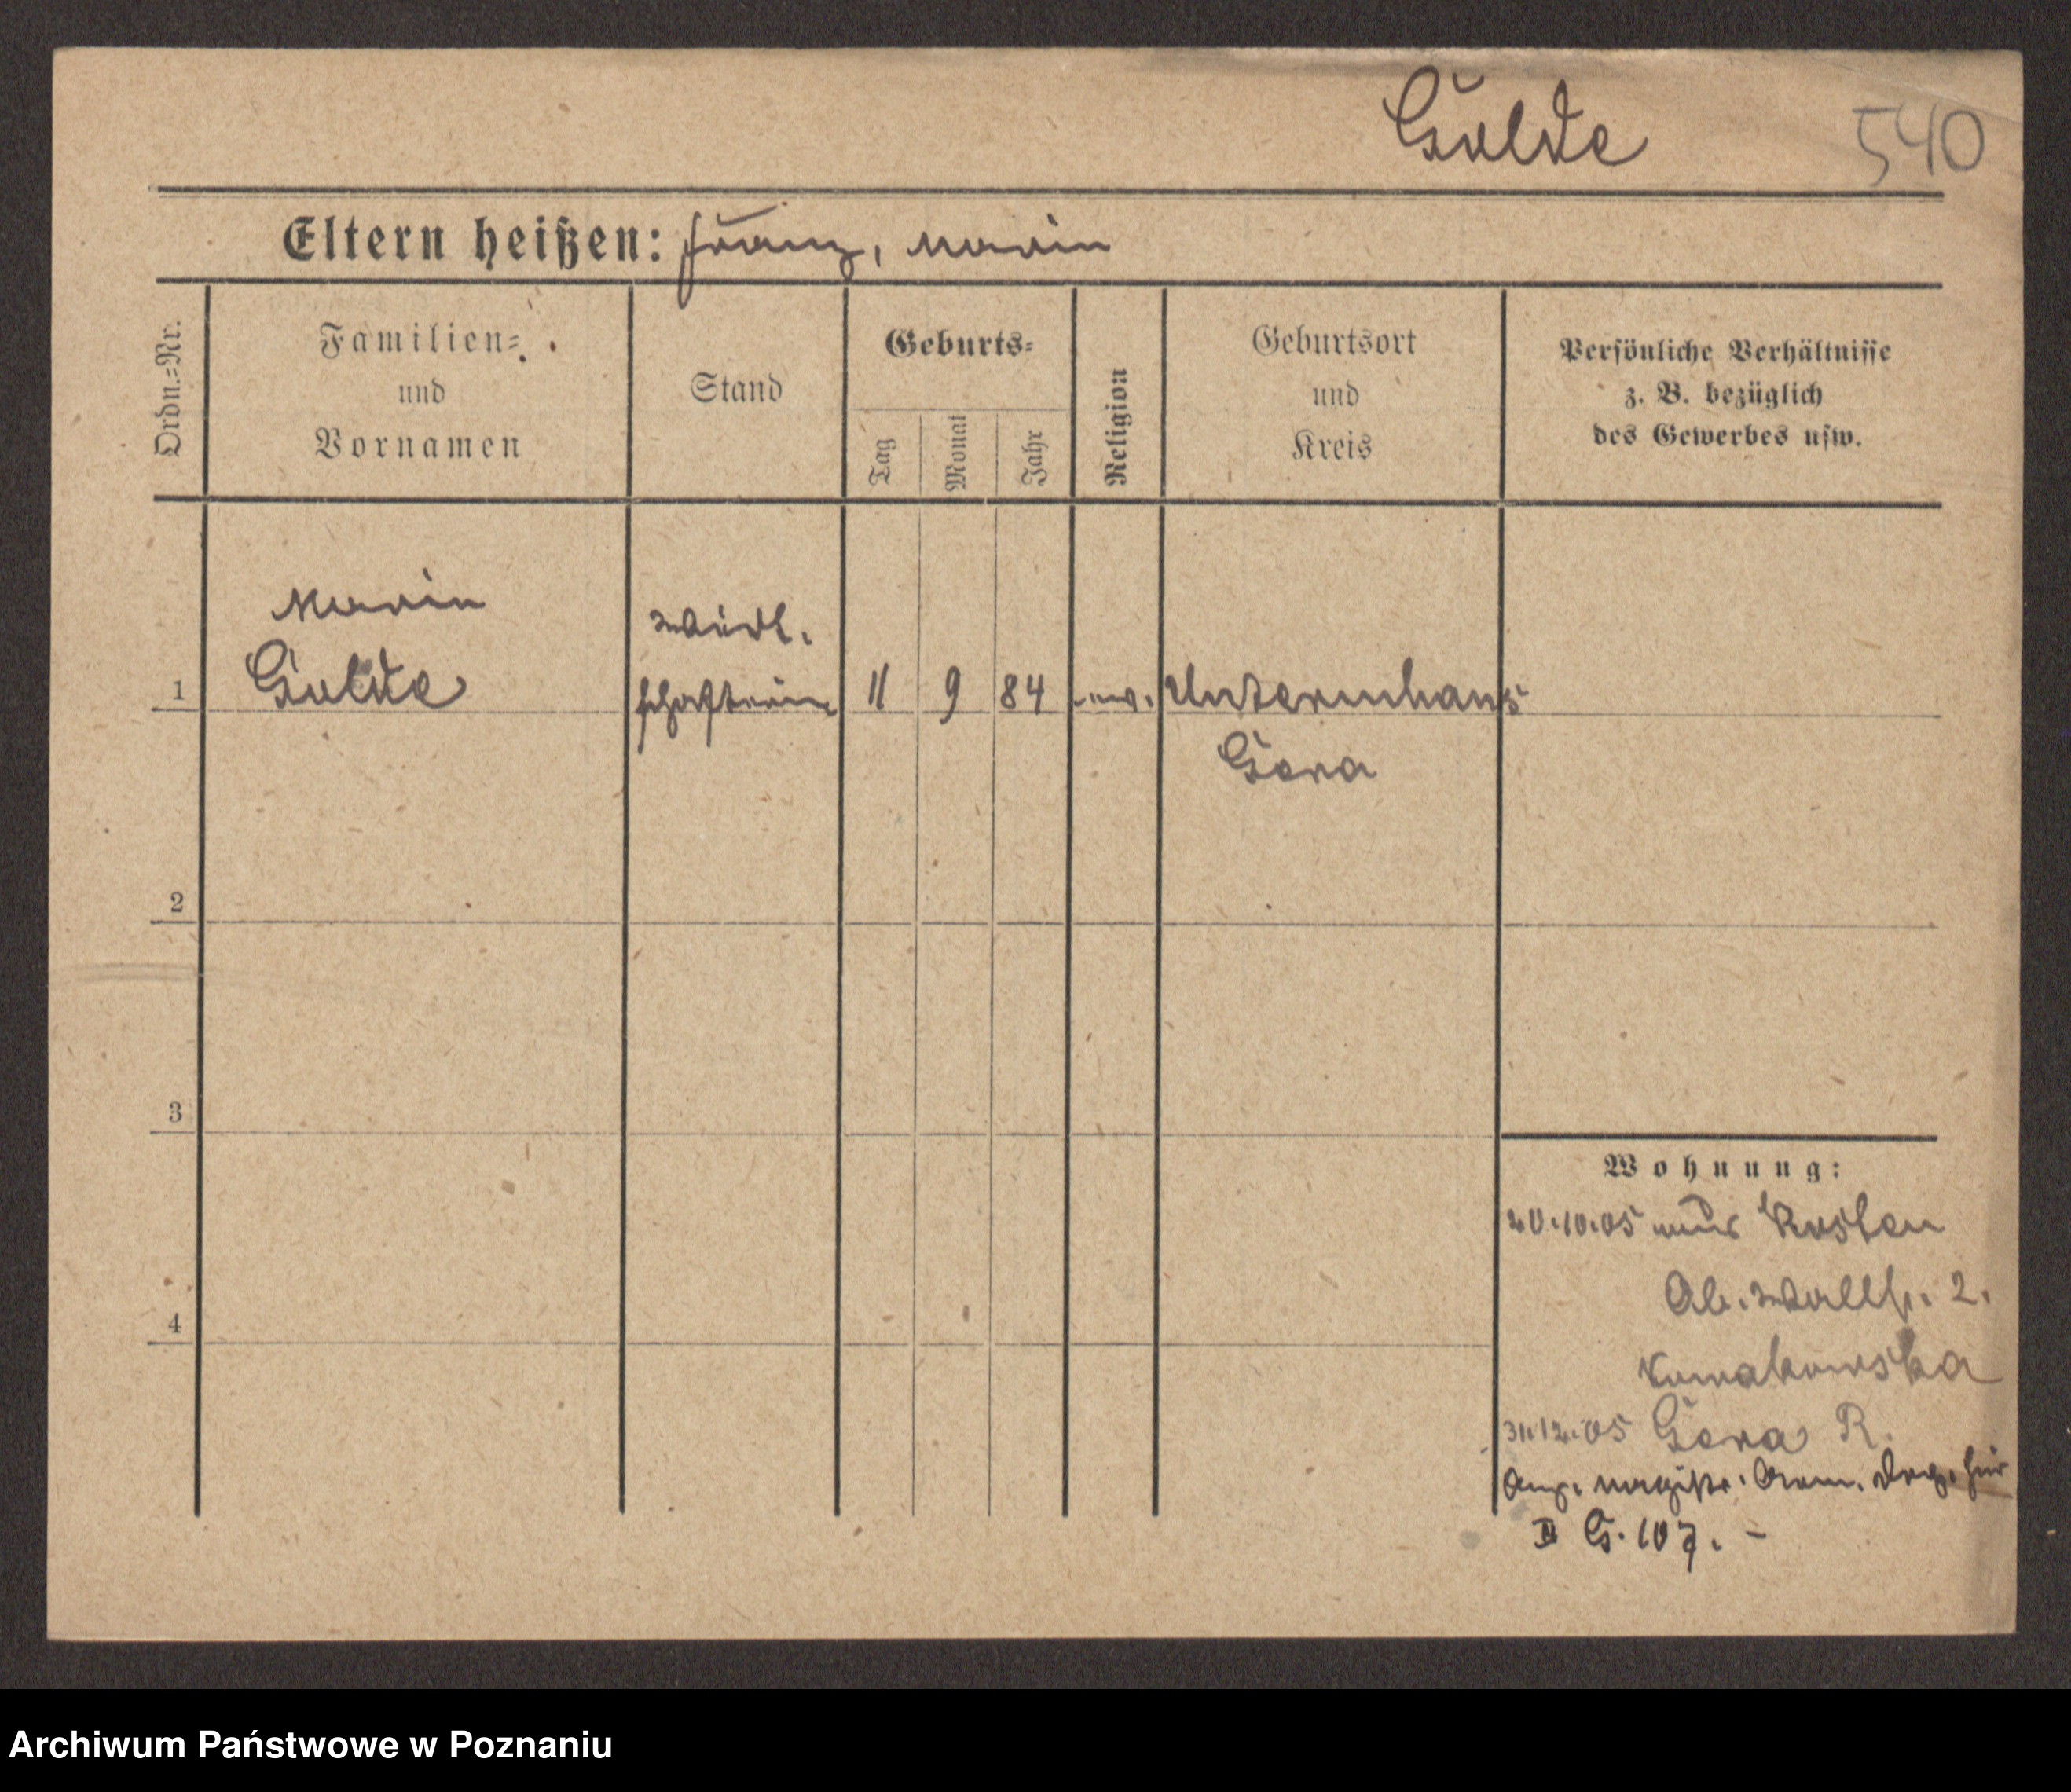 Gulde 540
Eltern heißen: Franz, Marie
Ordn.=Nr.
Familien=
und
Vornamen
Stand
Geburts=
Tag
Monat
Jahr
Religion
Geburtsort
und
Kreis
Persönliche Verhältnisse
z. B. bezüglich
des Gewerbes usw.
Marie
Gulde
Wirt.
schafterin
1
11 9 84 ev. Untermhaus
Gera
2
3
4
Wohnung:
20.10.05 aus Kosten
2.
31.12.05 Gera R.
II G. 107. -
Archiwum Państwowe w Poznaniu